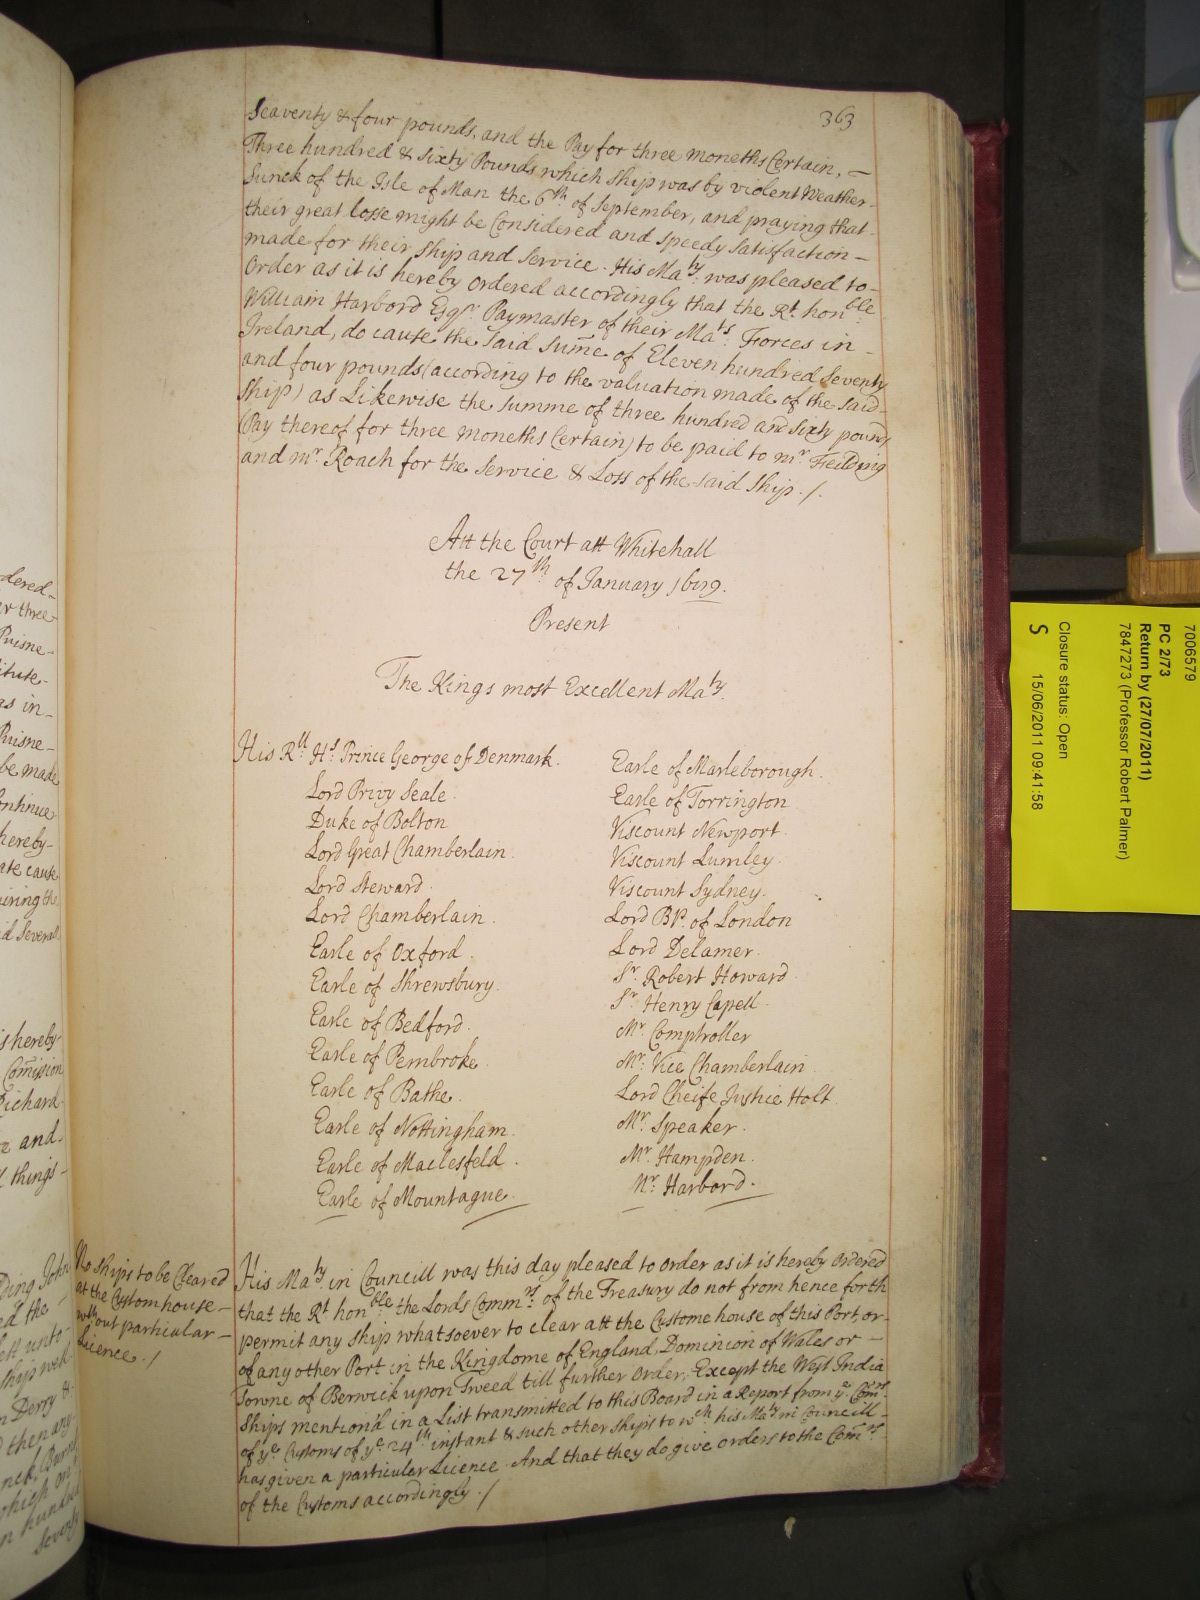 363
Seaventy & four pounds, and the Pay for three moneths Certain, —
Three hundred & sixty Pounds which ship was by violent Weather
Sunck of the Isle of Man the 6th of September, and praying that
their great losse might be Considered and speedy satisfaction —
made for their ship and service. His Maty. was pleased to
Order as it is hereby ordered accordingly that the Rt. honble
William Harbord Esqr. Paymaster of their Mats. Forces in -
Ireland, do cause the said sum̄e of Eleven hundred Seventy
and four pounds (according to the valuation made of the said
ship) as Likewise the summe of three hundred and sixty pounds
(Pay thereof for three moneths Certain) to be paid to mr. Feilding
and mr. Roach for the Service & Loss of the said ship ./.
Att the Court att Whitehall
the 27th. of January 1689.
Present
The Kings most Excellent Maty.
His Rll. Hs. Prince George of Denmark.
Lord Privy Seale.
Duke of Bolton
Lord Great Chamberlain.
Lord Steward.
Lord Chamberlain.
Earle of Oxford.
Earle of Shrewsbury.
Earle of Bedford.
Earle of Pembroke
Earle of Bathe.
Earle of Nottingham.
Earle of Maclesfeld.
Earle of Mountague.
Earle of Marleborough.
Earle of Torrington
Viscount Newport
Viscount Lumley
Viscount Sydney.
Lord Bp. of London
Lord Delamer.
Sr. Robert Howard
Sr. Henry Capell.
Mr. Comptroller
Mr. Vice Chamberlain
Lord Cheife Justice Holt.
Mr. Speaker.
Mr. Hampden.
Mr. Harbord.
No ships to be Cleared
at the Customhouse —
without particular —
Licence. /
His Maty. in Councill was this day pleased to order as it is hereby ordered
that the Rt. honble the Lords Commrs. of the Treasury do not from hence forth
permit any ship whatsoever to clear att the Custome house of this Port, or
of any other Port in the Kingdome of England, Dominion of Wales or —
Towne of Berwick upon Tweed till further Order. Except the West India
Ships mention'd in a List transmitted to this Board in a Report from ye. Com̄rs.
of ye Customs of ye 24th instant & such other ships to wch his Maty in Councill -
has given a particular Licence. And that they do give orders to the Com̄rs.
of the Customs accordingly. /
dered -
er three
Puisne -
itute -
as in -
Puisne -
be made
ontinue
hereby -
ate cause
uiring the
d Severall
is hereby
Com̄ission
Richard
and -
things -
ding John
ed the
ett unto
ship well
n Derry &
then any
which on
n hundred
Seventy
7006579
PC 2/73
Return by (27/07/2011)
7847273 (Professor Robert Palmer)
Closure status: Open
S 15/06/2011 09:41:58